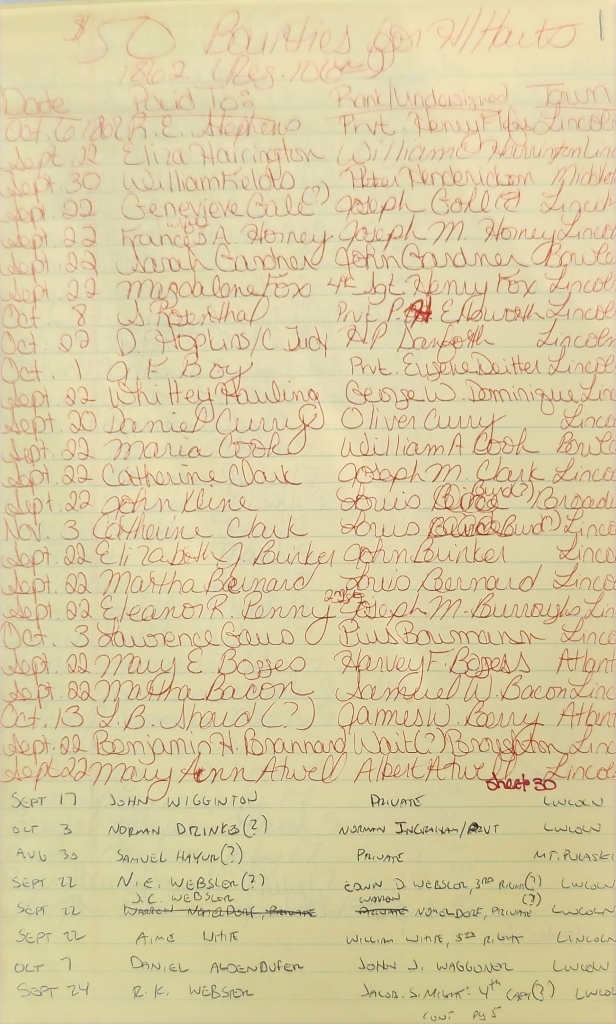 $50 Bounties for
1862
Date Paid To: Rank/Undersigned Town
Oct. 6 1862 R. E. Stephens Prvt. Henry Lincol
Sept. 22 Eliza Harrington William Harrington Linc
Sept. 30 William Fields Peter Henderickson Middlet
Sept. 22 Genevieve Gale(?) Joseph Lincol
Sept. 22 Frances A. Horney Joseph M. Horney Lincol
Sept. 22 Sarah Gardner John Gardner
Sept. 22 Magdalone Fox 4th Sgt. Henry Fox Lincol
Oct. 8 Rosenthal Prvt. P. Lincol
Oct. 22 D. Hopkins/C. Judy H.P. Danforth Lincoln
Oct. 1 Boy Prvt. Eugene Deitter Lincol
Sept. 22 Whittey Hauling George W. Dominique Linc
Sept. 20 Daniel Curry Oliver Curry Linco
Sept. 22 Maria Cook William A Cook
Sept. 22 Catherine Clark Joseph M. Clark Linco
Sept. 22 John Kline Louis Burd(?) Broad
Nov. 3 Catherine Clark Louis Burd(?) Linco
Sept. 22 Elizabeth J. Brinker John Brinker Linco
Sept. 22 Martha Bernard Louis Bernard Linco
Sept. 22 Eleanor R. Penny Joseph M. Burroughs Lin
Oct. 3 Lawrence Gaus Pius Boumann Linco
Sept. 22 Mary E Bogges Harvey F. Bogess Atlant
Sept. 22 Martha Bacon Samuel W. Bacon Linc
Oct. 13 Shoud(?) James W. Berry
Sept. 22 Benjamin H. Brannard Wait(?) Broughton Linc
Sept 22 Mary Ann Atwell Albert Atwell Lincol
Sheet 30
SEPT 17 JOHN WIGGINTON PRIVATE LINCOLN
OCT 3 NORMAN DRINKS(?) NORMAN INGRAHAM/PRVT LINCOLN
AUG 30 SAMUEL HAYUR(?) PRIVATE MT. PULASKI
SEPT 22 N.E. WEBSLOR(?) EDWIN D. WEBSLOR, 3RD LINCOLN
J.C. WEBSTOR WARRON (?)
SEPT 22 WARRON NOTELDORF, PRIVATE PRIVATE NOTELDORF, PRIVATE LINCOLN
SEPT 22 AIME WITTE WILLIAM WITTE, LINCOLN
OCT 7 DANIEL ALDENDUFER JOHN J. WAGGONER LINCOLN
SEPT 24 R.K. WEBSTER JACOB. 4th CAPT(?) LINCOL
CONT PG 5